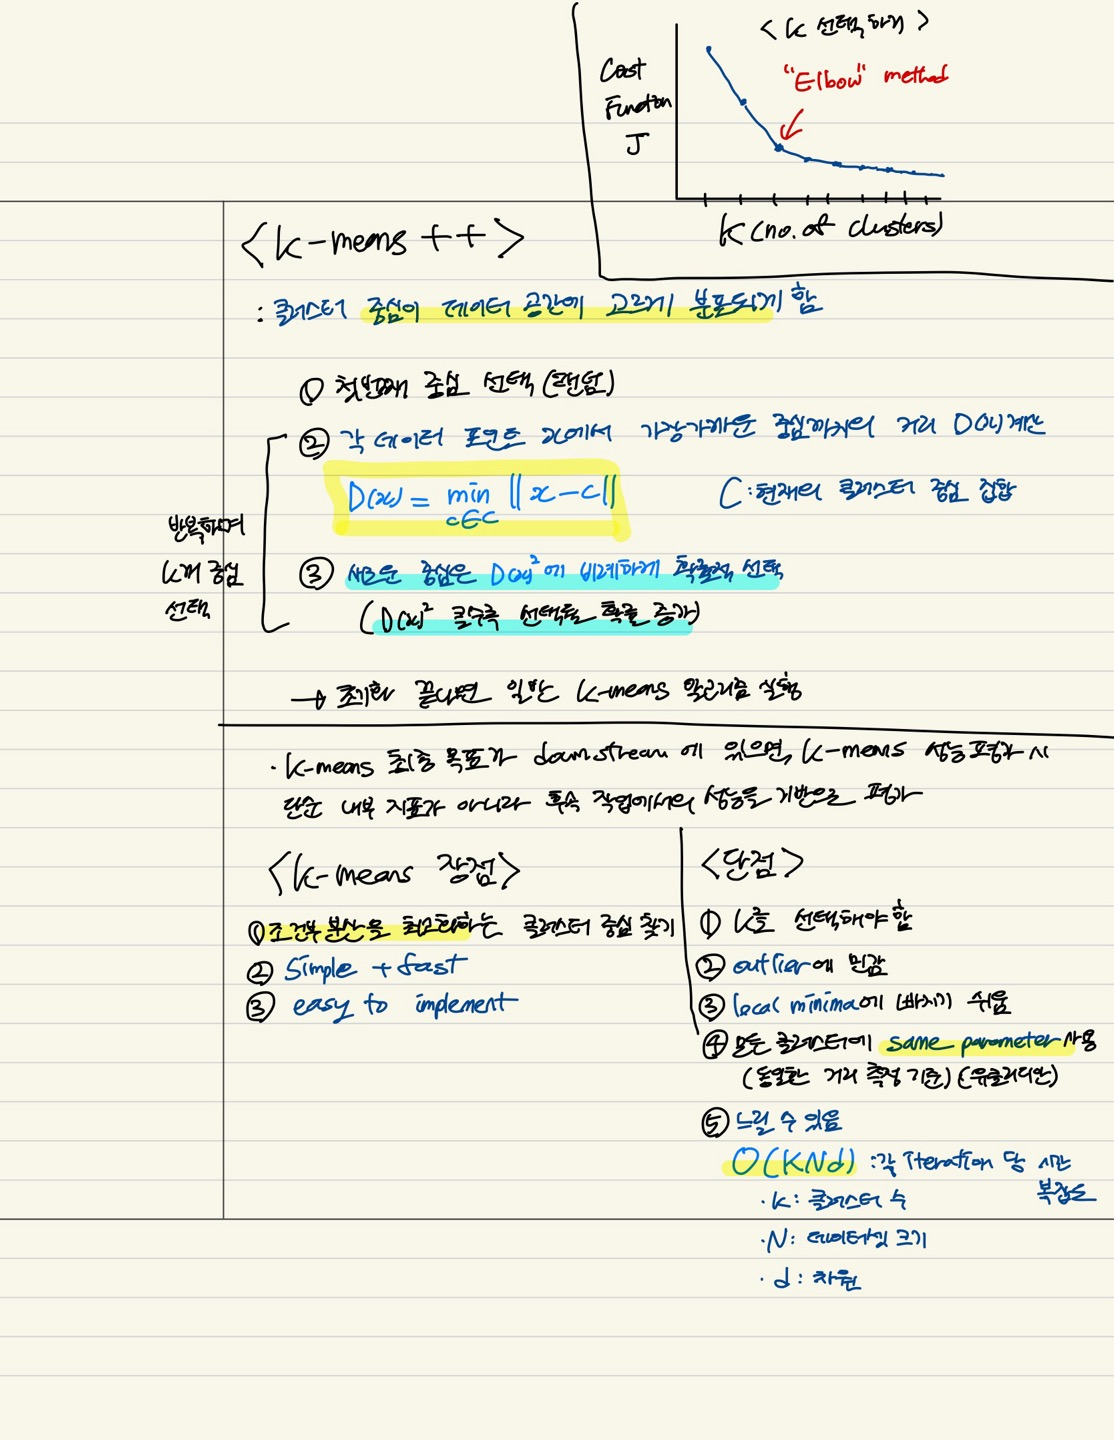 <K 선택하기>
"Elbow" method
Cost
Function
J
K (no. of clusters)
<k-means ++>
: 클러스터 중심이 데이터 공간에 고르게 분포되게 함
① 첫번째 중심 선택 (랜덤)
② 각 데이터 포인트 x에서 가장가까운 중심까지의 거리 D(x) 계산
D(x) = min || x - c ||
c∈C
C : 현재의 클러스터 중심 집합
반복하며
k개 중심
선택
③ 새로운 중심은 D(x)²에 비례하게 확률적 선택
(D(x)² 클수록 선택될 확률 증가)
→ 초기화 끝나면 일반 k-means 알고리즘 실행
· K-means 최종 목표가 downstream 에 있으면, K-means 성능평가 시
단순 내부 지표가 아니라 후속 작업에서의 성능을 기반으로 평가
<k-means 장점>
① 조건부 분산을 최소화하는 클러스터 중심 찾기
② Simple + fast
③ easy to implement
<단점>
① K를 선택해야 함
② outlier에 민감
③ local minima에 빠지기 쉬움
④ 모든 클러스터에 same parameter 사용
(동일한 거리 측정 기준) (유클리디안)
⑤ 느릴 수 있음
O(KNd) : 각 iteration 당 시간
복잡도
· K : 클러스터 수
· N : 데이터셋 크기
· d : 차원